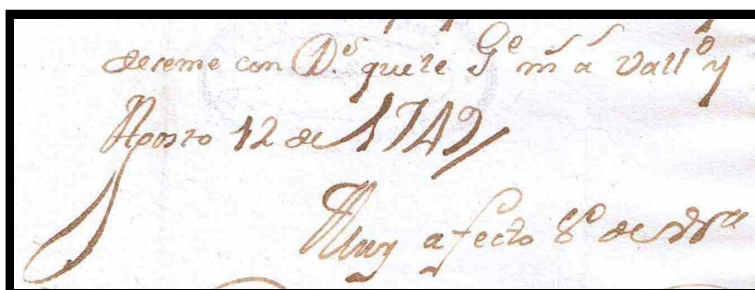 deseme con D.s que te G.e m.s a.s Vall.d y
Agosto 12 de 1742
Muy afecto S.o de